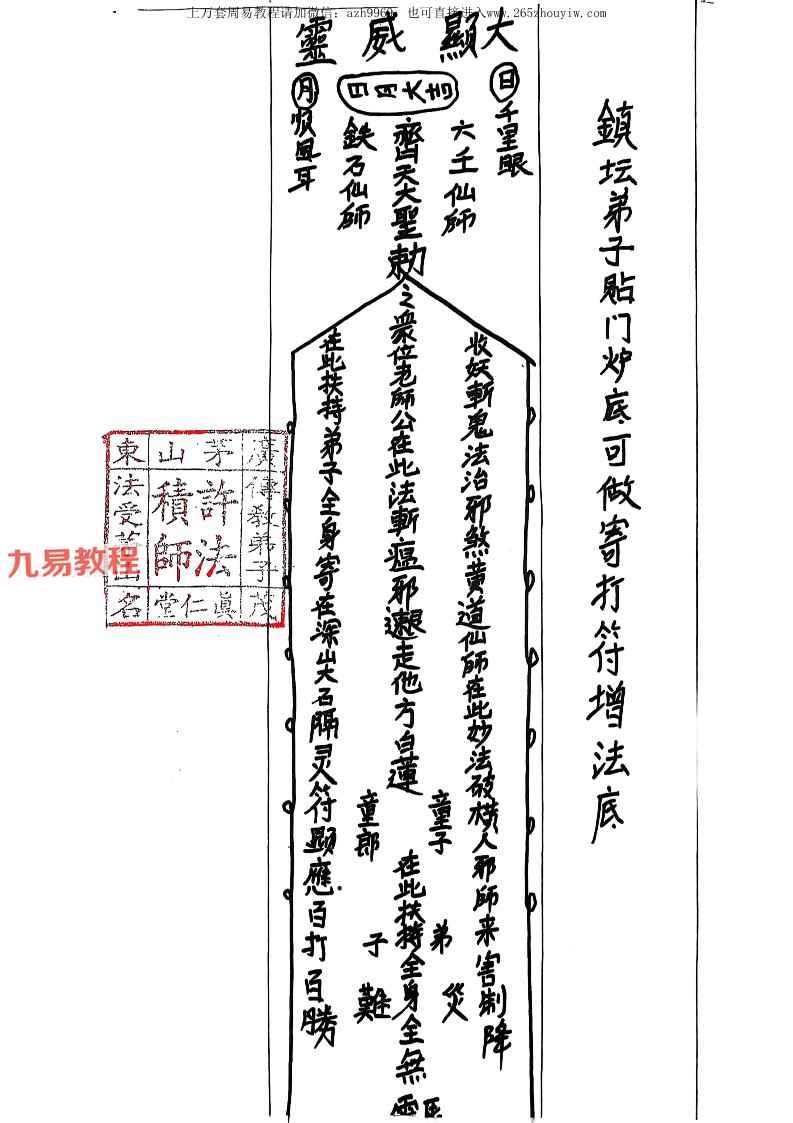 上万套周易教程请加微信：azh996，也可直接进入www.265zhouyiw.com
鎮坛弟子貼门炉底可做寄打符增法底
大顯威靈
日月大吉
日千里眼
月順風耳
六壬仙師
齊天大聖勅
鉄石仙師
收妖斬鬼法治邪煞黃道仙師在此妙法破橫人邪師来害制降
之眾位老師公在此法斬瘟邪速退走他方白蓮
童子
童郎
在此扶持全身全無
弟
子
災
難
在此扶持弟子全身寄在深山大石隔灵符顯應百打百勝
廣傳教弟子茂
茅山
許法
積師
真仁堂
東法受茅山名
九易教程